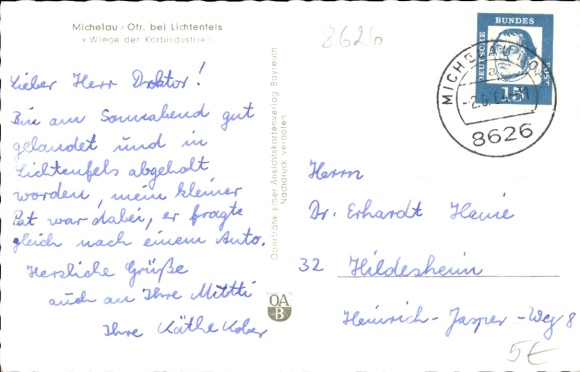 Michelau / Ofr. bei Lichtenfels
» Wiege der Korbindustrie «
8626
Lieber Herr Doktor!
Bin am Sonnabend gut
gelandet und in
Lichtenfels abgeholt
worden, mein kleiner
Pat war dabei, er fragte
gleich nach einem Auto.
Herzliche Grüße
auch an Ihre Mittti
Ihre Käthe Kober
Oberfränkischer Ansichtskartenverlag Bayreuth
Nachdruck verboten
OA
B
DEUTSCHE
BUNDES
POST
15
8626
Herrn
Dr. Erhardt Heine
32 Hildesheim
Heinrich-Jasper-Weg 8
5€